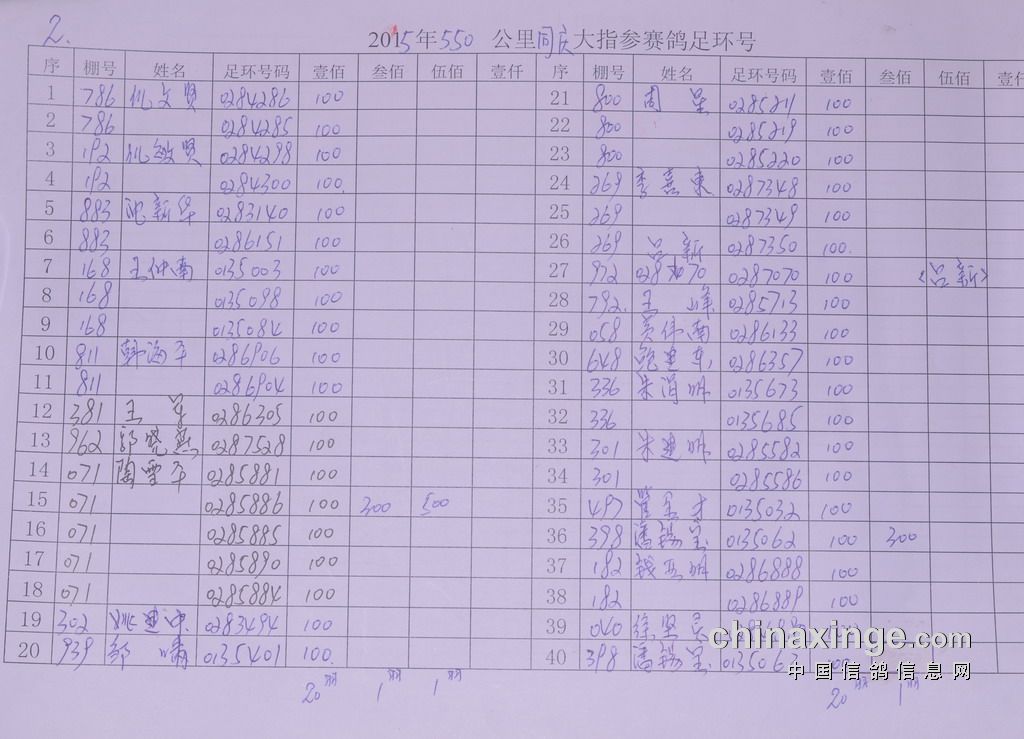 2.
2015年550 公里同庆大指参赛鸽足环号
序 棚号 姓名 足环号码 壹佰 叁佰 伍佰 壹仟 序 棚号 姓名 足环号码 壹佰 叁佰 伍佰 壹仟
1 786 0284286 100 21 800 周星 0285211 100
2 786 0284285 100 22 800 0285219 100
3 192 0284298 100 23 800 0285220 100
4 192 0284300 100. 24 269 李熹东 0287348 100
5 883 沈新华 0283140 100 25 269 0287349 100
6 883 0286151 100 26 269 吕新 0287350 100.
7 168 王仲南 0135003 100 27 972 0287070 0287070 100 <吕新>
8 168 0135098 100 28 792. 王峰 0285713 100
9 168 0135084 100 29 058 黄伟南 0286133 100
10 811 韩海平 0286906 100 30 648 鲍建东 0286357 100
11 811 0286904 100 31 336 朱涓明 0135673 100
12 381 王 0286305 100 32 336 0135685 100
13 962 郭晓燕 0287528 100 33 301 朱建明 0285582 100
14 071 陶雪平 0285881 100 34 301 0285586 100
15 071 0285886 100 300 500 35 497 0135032 100
16 071 0285885 100 36 398 潘锡呈 0135062 100 300
17 071 0285890 100 37 182 钱亚明 0286888 100
18 071 0285884 100 38 182 0286889 100
19 302 姚建冲 0283494 100 39 040 徐坚
20 939 邹啸 0135401 100. 40 398 潘锡呈 0135063 100
20羽 1羽 1羽 20羽 1羽
chinaxinge.com
中国信鸽信息网